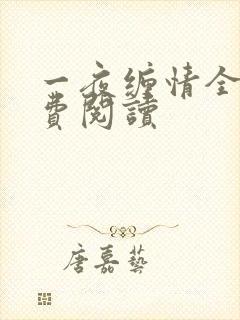 一夜缠情全
费阅读
唐嘉藝